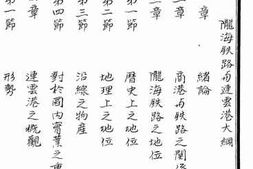 隴海鉄路与連雲港大綱
章 緒論
一章 商港与鉄路之関係
章 隴海鉄路之地位
第一節 歴史上之地位
第二節 地理上之地位
第三節 沿線之物産
第四節 對於國内實業之重
二章 連雲港之概觀
第一節 形勢